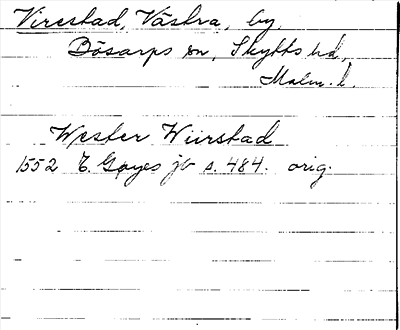 Virestad, Västra, by
Bösarps sn, Skytts hd,
Malm. l.
Wester Wiirstad
1552 E. Gøyes jb s. 484. orig.